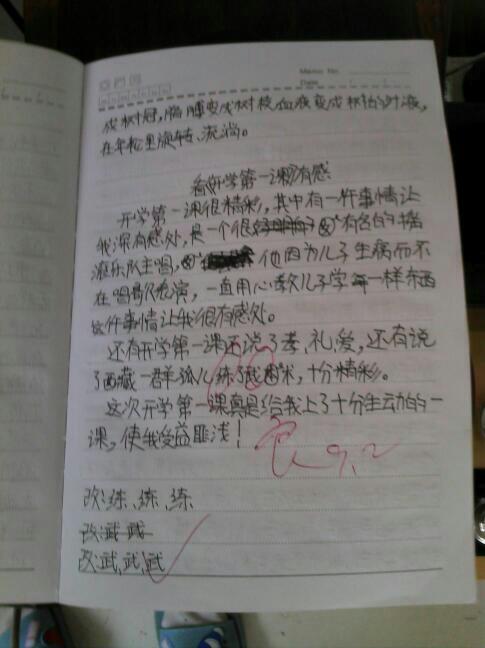 Memo No.
Date
成树冠,胳膊变成树枝,血液变成树的叶液,
在年轮里旋转、流淌。
看《开学第一课》有感
开学第一课很精彩,其中有一件事情让
我深有感处,是一个很有名的摇
滚乐队主唱,他因为儿子生病而不
在唱歌表演,一直用心教儿子学每一样东西
这件事情让我很有感处。
还有开学第一课还说了孝、礼、爱,还有说
了西藏一群孤儿练了武术,十分精彩。
这次开学第一课真是给我上了十分生动的一
课,使我受益匪浅!
9.2
改:练、练、练
改:武 武
改:武,武,武